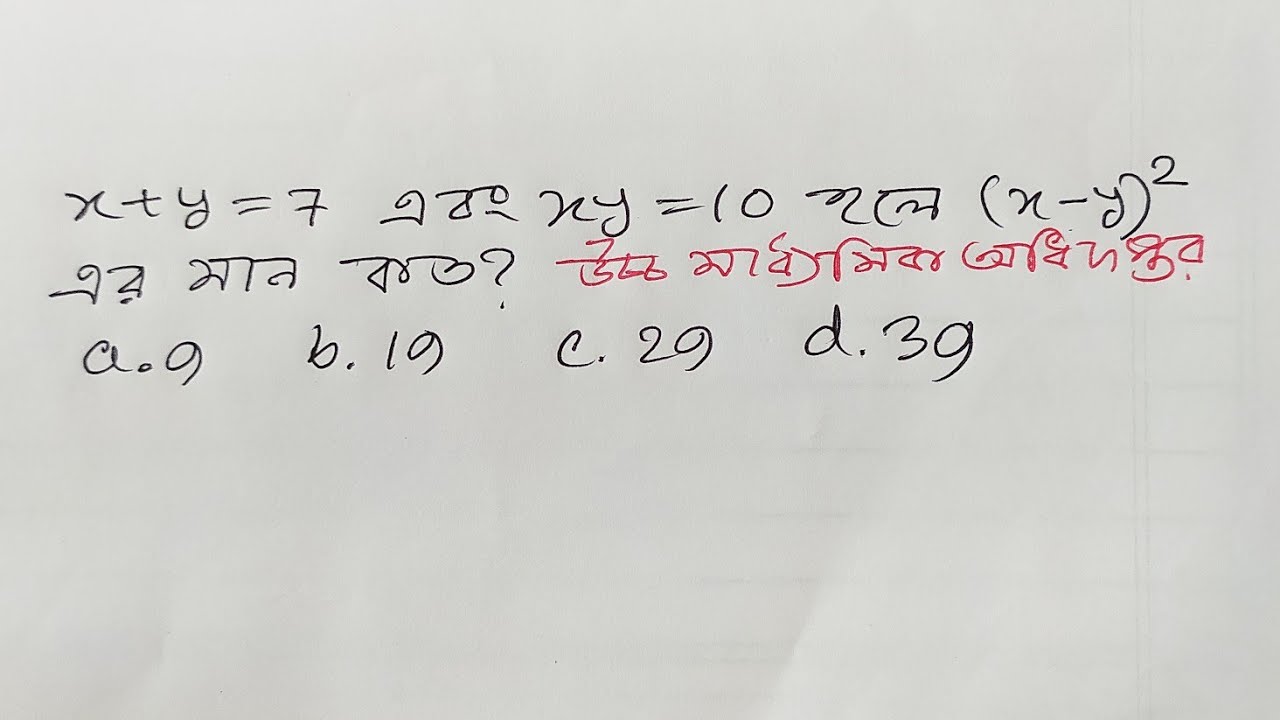 x+y=7 এবং xy=10 হলে (x-y)²
এর মান কত? উচ্চ মাধ্যমিক অধিদপ্তর
a.9 b.19 c.29 d.39